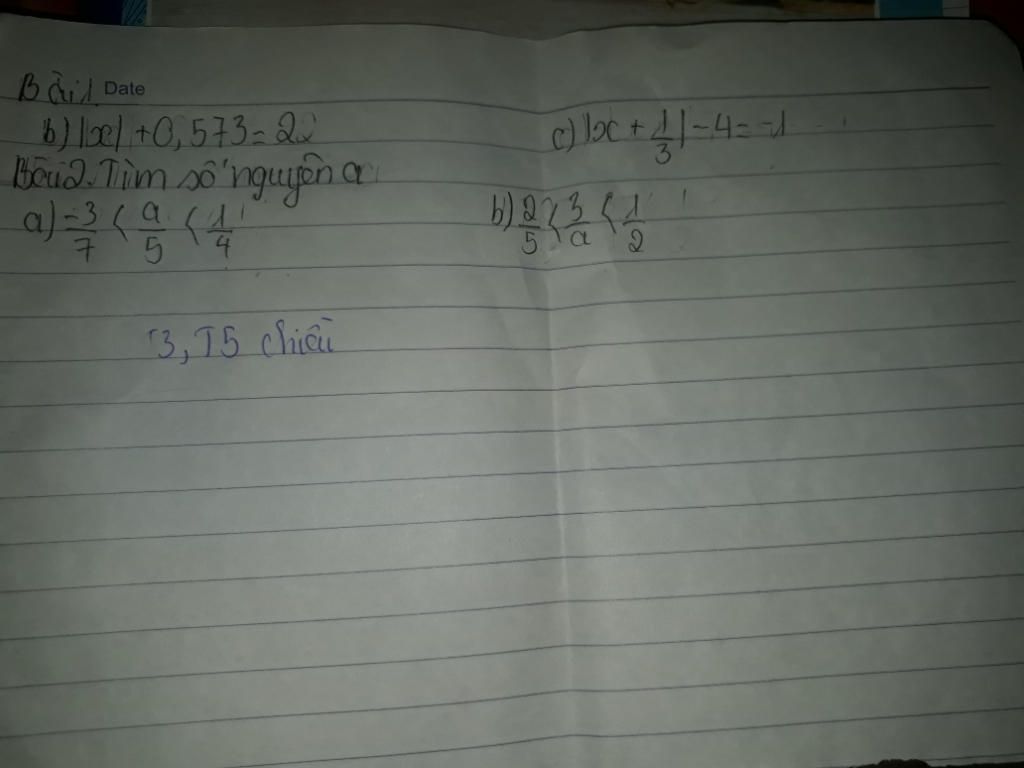 Bài 1 Date
b) |x| + 0,573 = 2 c) |x + 1/3| - 4 = -1
Bài 2. Tìm số nguyên a
a) -3/7 < a/5 < 1/4 b) 2/5 < 3/a < 1/2
T3, T5 chiều